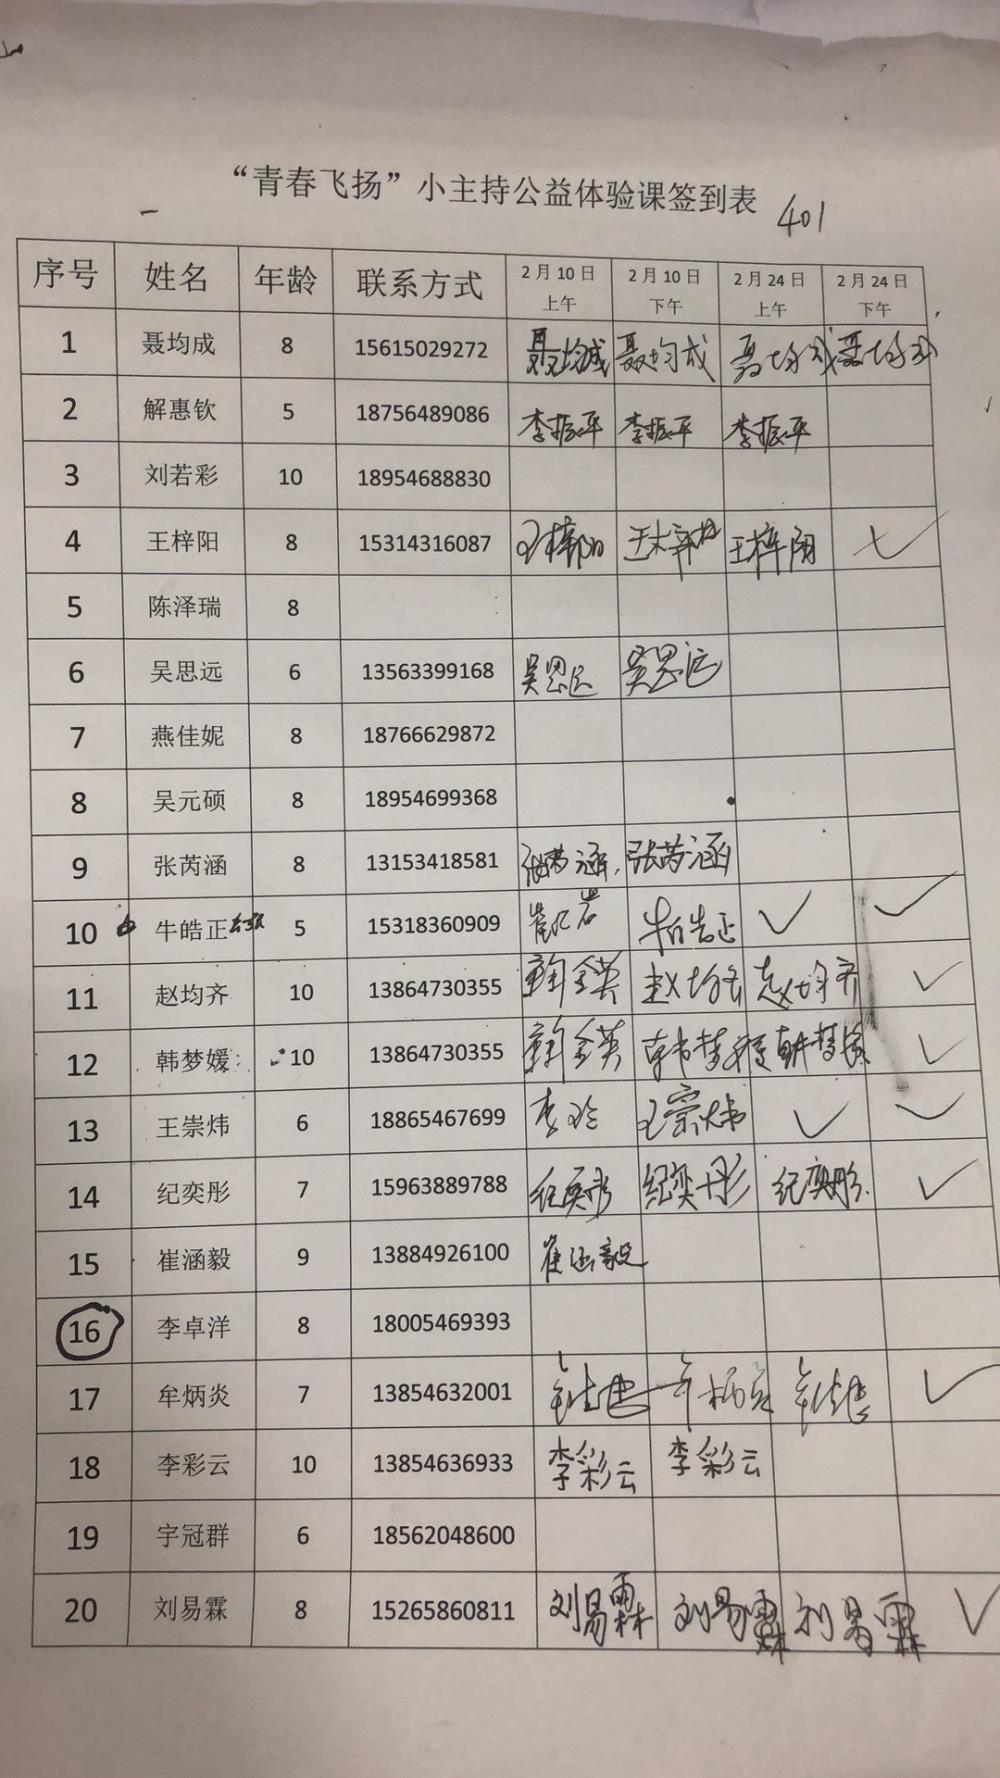 “青春飞扬”小主持公益体验课签到表 401
序号 姓名 年龄 联系方式 2月10日上午 2月10日下午 2月24日上午 2月24日下午
1 聂均成 8 15615029272 聂均成 聂均成 聂均成 聂均成
2 解惠钦 5 18756489086 李振平 李振平 李振平
3 刘若彩 10 18954688830
4 王梓阳 8 15314316087 王梓阳 王梓阳 王梓阳 ✓
5 陈泽瑞 8
6 吴思远 6 13563399168 吴思远 吴思远
7 燕佳妮 8 18766629872
8 吴元硕 8 18954699368
9 张芮涵 8 13153418581 张芮涵 张芮涵
10 牛皓正 5 15318360909 牛皓正 ✓ ✓
11 赵均齐 10 13864730355 赵均齐 赵均齐 ✓
12 韩梦媛 10 13864730355 韩梦媛 韩梦媛 ✓
13 王崇炜 6 18865467699 李玲 王崇炜 ✓ ✓
14 纪奕彤 7 15963889788 纪奕彤 纪奕彤 纪奕彤 ✓
15 崔涵毅 9 13884926100 崔涵毅
16 李卓洋 8 18005469393
17 牟炳炎 7 13854632001 牟炳炎 ✓
18 李彩云 10 13854636933 李彩云 李彩云
19 宇冠群 6 18562048600
20 刘易霖 8 15265860811 刘易霖 刘易霖 刘易霖 ✓